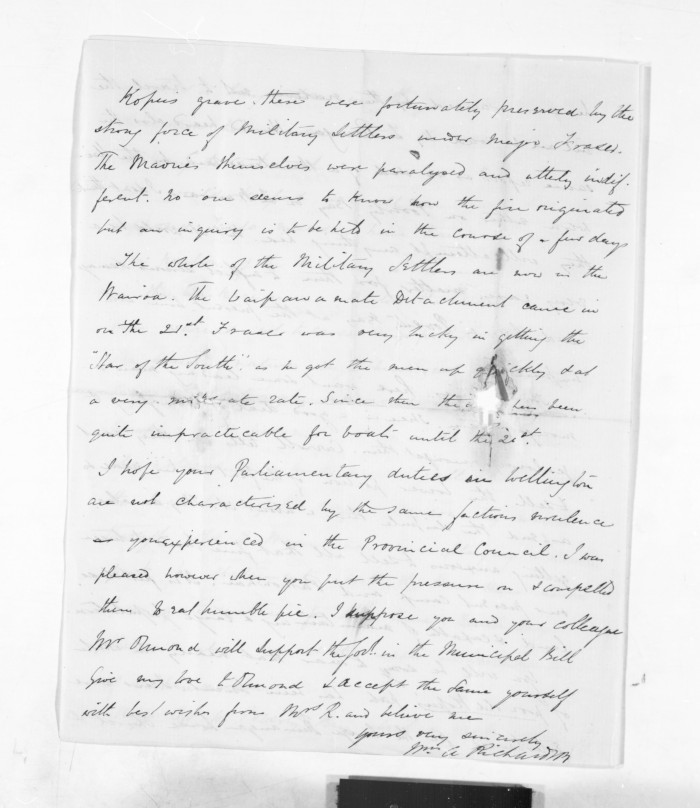 Kopu's grave. these were fortunately preserved by the
strong force of Military Settlers under Major Fraser.
The Maories themselves were paralysed and utterly indif-
ferent. No one seems to know how the fire originated
but an inquiry is to be held in the course of a few days
The whole of the Military Settlers are now in the
Wairoa. The Waiparamate Detachment came in
on the 21st. Fraser was very lucky in getting the
"Star of the South" as he got the men up quickly & at
a very ate rate. Since then the has been
quite impracticable for boats until the 21st.
I hope your Parliamentary duties in Wellington
are not characterised by the same factious virulence
as you experienced in the Provincial Council. I was
pleased however when you put the pressure on & compelled
them to eat humble pie. I suppose you and your colleague
Mr Ormond will support the Govt. in the Municipal Bill
Give my love to Ormond & accept the same yourself
with best wishes from Mrs R. and believe me
yours very sincerely
Wm A Richardson